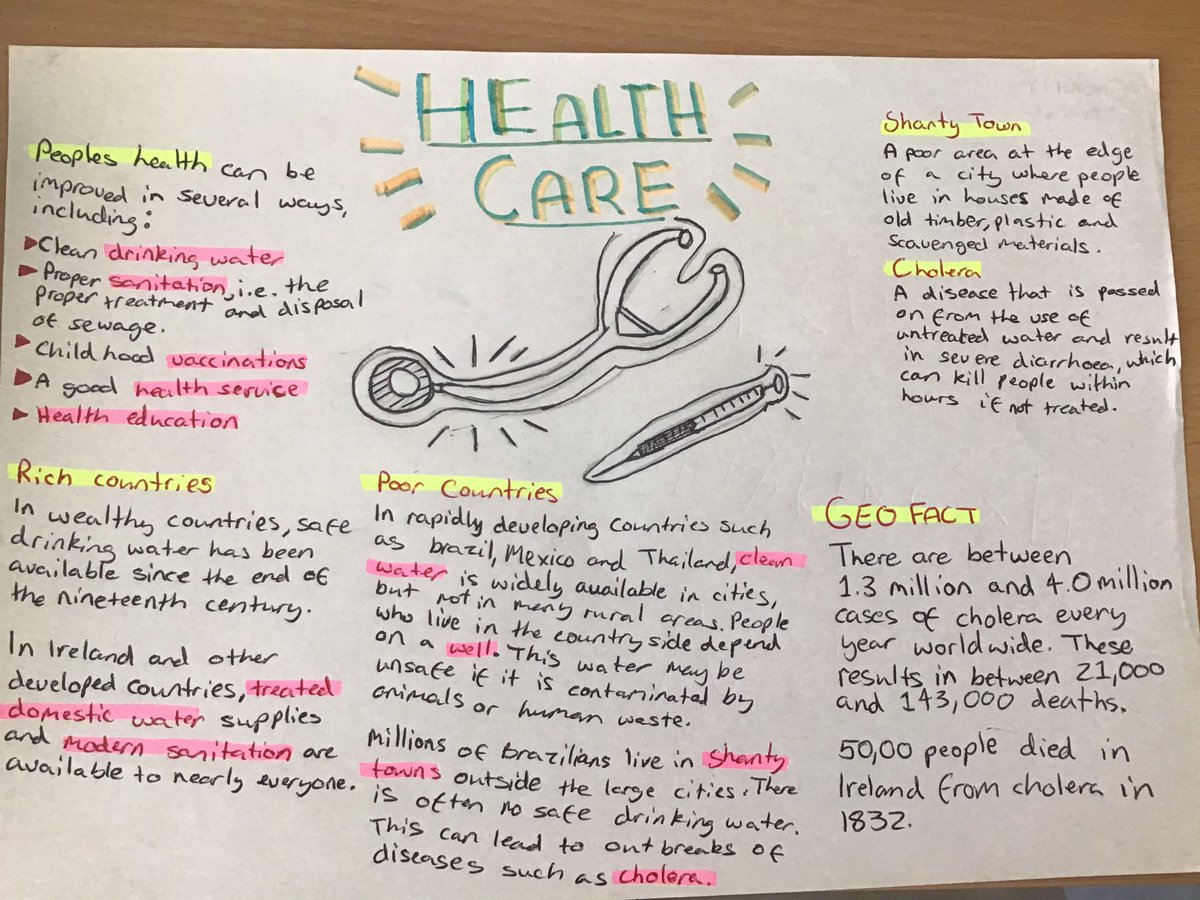 HEALTH
CARE
Peoples health can be
improved in several ways,
including:
Clean drinking water
Proper sanitation, i.e. the
proper treatment and disposal
of sewage.
Child hood vaccinations
A good health service
Health education
Shanty Town
A poor area at the edge
of a city where people
live in houses made of
old timber, plastic and
scavenged materials.
Cholera
A disease that is passed
on from the use of
untreated water and result
in severe diarrhoea, which
can kill people within
hours if not treated.
Rich countries
In wealthy countries, safe
drinking water has been
available since the end of
the nineteenth century.
In Ireland and other
developed countries, treated
domestic water supplies
and modern sanitation are
available to nearly everyone.
Poor Countries
In rapidly developing countries such
as brazil, Mexico and Thailand, clean
water is widely available in cities,
but not in many rural areas. People
who live in the country side depend
on a well. This water may be
unsafe if it is contaminated by
animals or human waste.
Millions of brazilians live in shanty
towns outside the large cities. There
is often no safe drinking water.
This can lead to out breaks of
diseases such as cholera.
GEO FACT
There are between
1.3 million and 4.0 million
cases of cholera every
year worldwide. These
results in between 21,000
and 143,000 deaths.
50,00 people died in
Ireland from cholera in
1832.